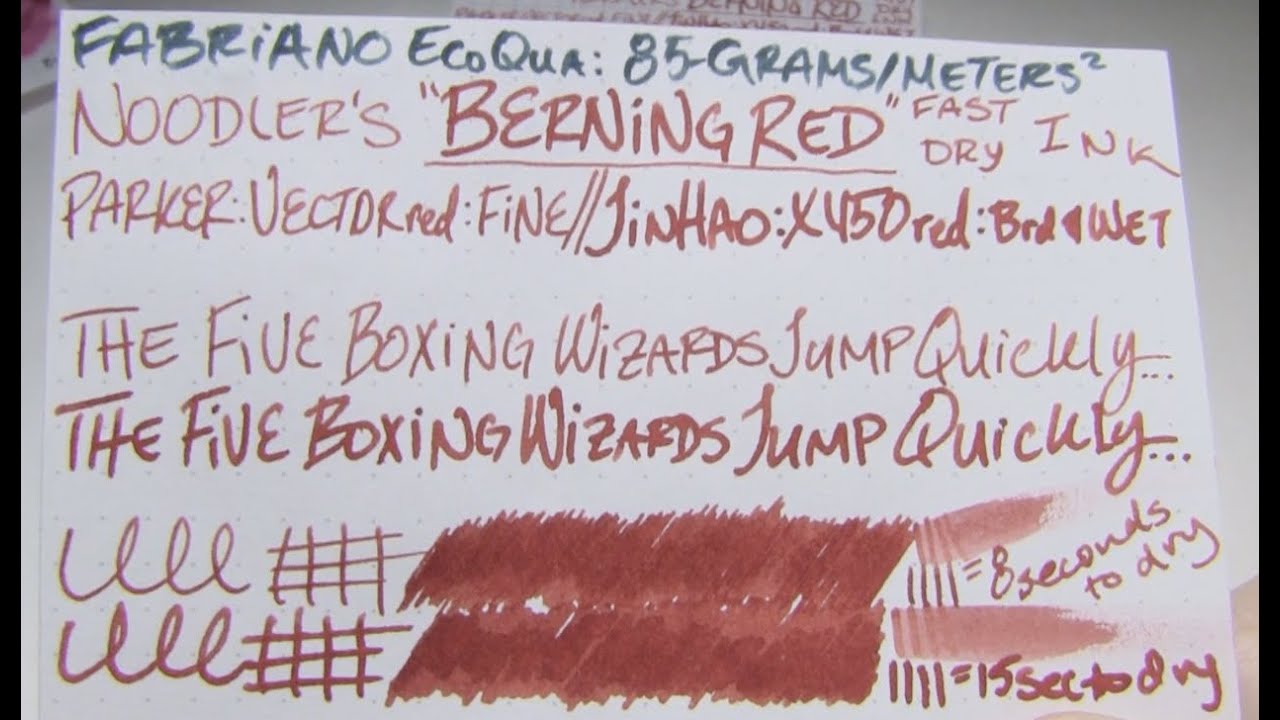 BERNING RED
FABRIANO EcoQua: 85-GRAMS/METERS²
NOODLER'S "BERNING RED" FAST DRY INK
PARKER:VECTOR red:FINE//JINHAO:X450 red:Brd WET
THE FIVE BOXING WIZARDS JUMP QUICKLY...
THE FIVE BOXING WIZARDS JUMP QUICKLY...
= 8 seconds to dry
= 15 sec to dry